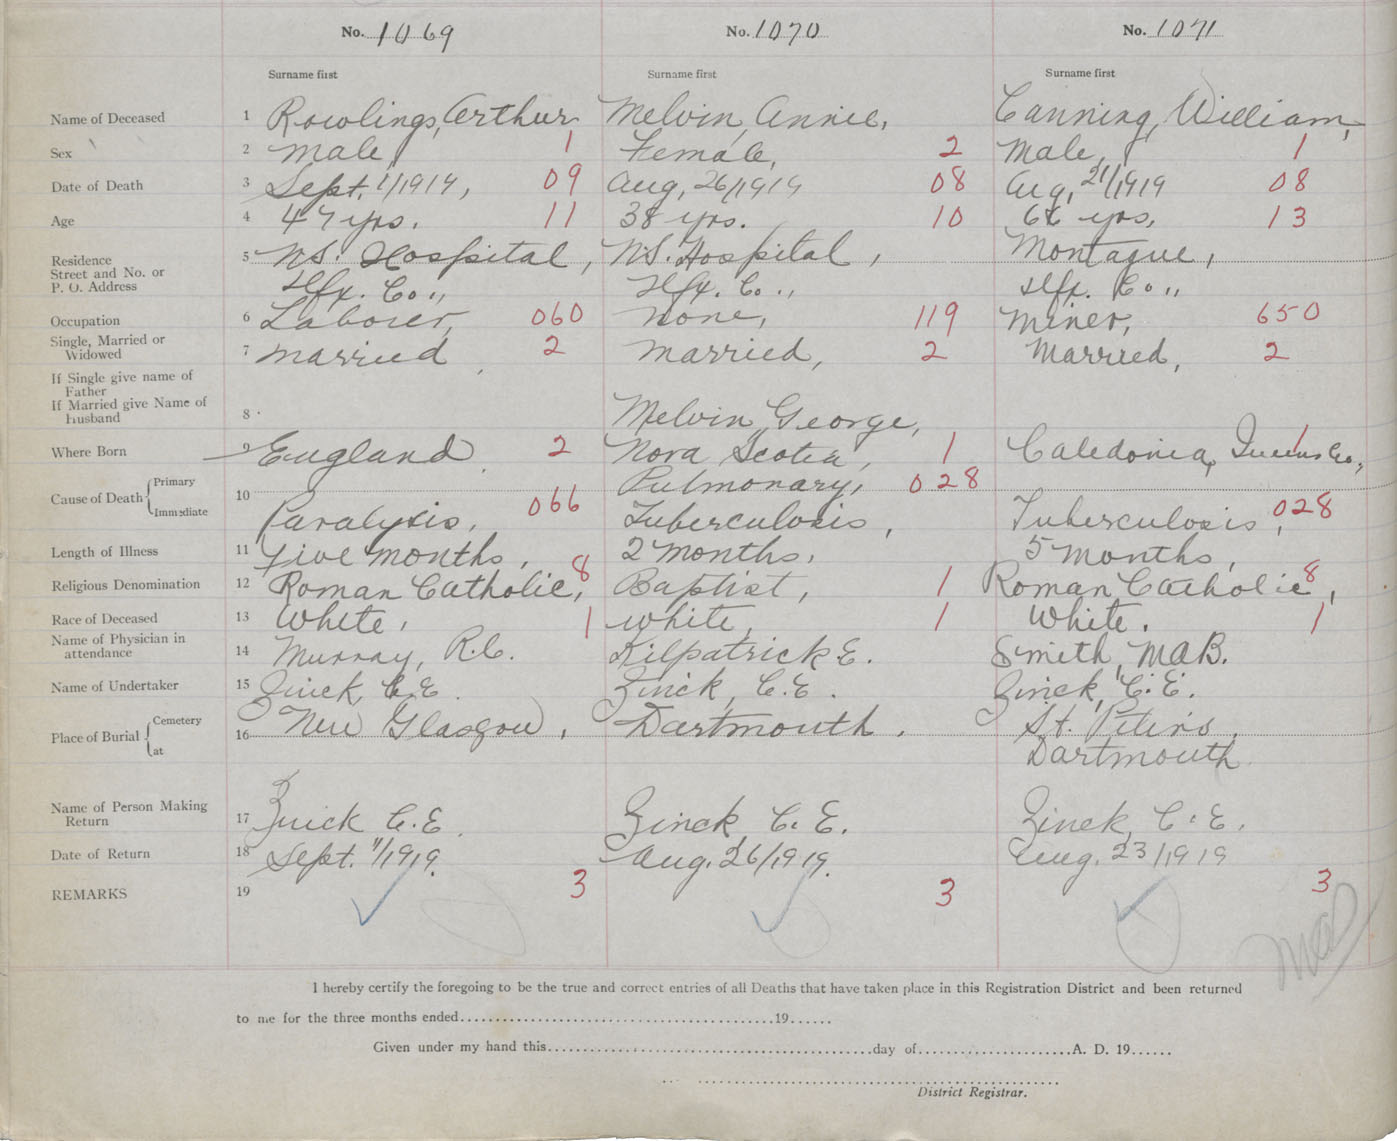 No. 1069 No. 1070 No. 1071
Surname first Surname first Surname first
Name of Deceased 1 Rowlings, Arthur Melvin, Annie, Canning, William,
Sex 2 Male, 1 Female, 2 Male, 1
Date of Death 3 Sept. 1/1919, 09 Aug, 26/1919 08 Aug, 21/1919 08
Age 4 47 yrs. 11 38 yrs. 10 yrs, 13
Residence
Street and No. or
P. O. Address
5 N.S. Hospital, N.S. Hospital, Montague,
Hfx. Co., Hfx. Co., Hfx. Co.,
Occupation 6 Laborer, 060 None, 119 Miner, 650
Single, Married or
Widowed
7 Married, 2 Married, 2 Married, 2
If Single give name of
Father
If Married give Name of
husband
8 Melvin, George,
Where Born 9 England, 2 Nova Scotia, 1 Caledonia, Queens Co., 1
Cause of Death { Primary 10 Pulmonary, 028
Immediate Paralysis, 066 Tuberculosis, Tuberculosis, 028
Length of Illness 11 five months, 2 months, 5 months,
Religious Denomination 12 Roman Catholic, 8 Baptist, 1 Roman Catholic, 8
Race of Deceased 13 White, 1 White, 1 White. 1
Name of Physician in
attendance
14 Murray, R.C. Kilpatrick E. Smith, M.A.B.
Name of Undertaker 15 Zinck, C.E. Zinck, C.E. Zinck, C.E.
Place of Burial { Cemetery 16 New Glasgow, Dartmouth. St. Peters,
at Dartmouth
Name of Person Making
Return
17 Zinck C.E. Zinck, C.E. Zinck, C.E.
Date of Return 18 Sept. 1/1919. Aug. 26/1919. Aug. 23/1919
REMARKS 19 3 3 3
MAB
I hereby certify the foregoing to be the true and correct entries of all Deaths that have taken place in this Registration District and been returned
to me for the three months ended 19
Given under my hand this day of A. D. 19
District Registrar.